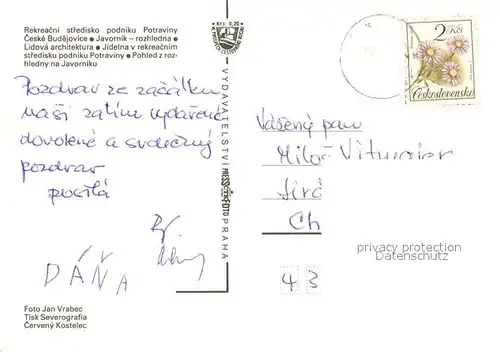 Rekreační středisko podniku Potraviny
České Budějovice • Javorník – rozhledna •
Lidová architektura • Jídelna v rekreačním
středisku podniku Potraviny • Pohled z roz-
hledny na Javorníku
Kčs 0,20
2 Kčs
Československo
Pozdrav ze začátku
naší zatím vydařené
dovolené a srdečný
pozdrav
posílá
DÁŇA
VYDAVATELSTVÍ PRESSFOTO PRAHA
Vážený pan
Miloš
Ch
43
privacy protection
VEREDUS
Foto Jan Vrabec
Tisk Severografia
Červený Kostelec